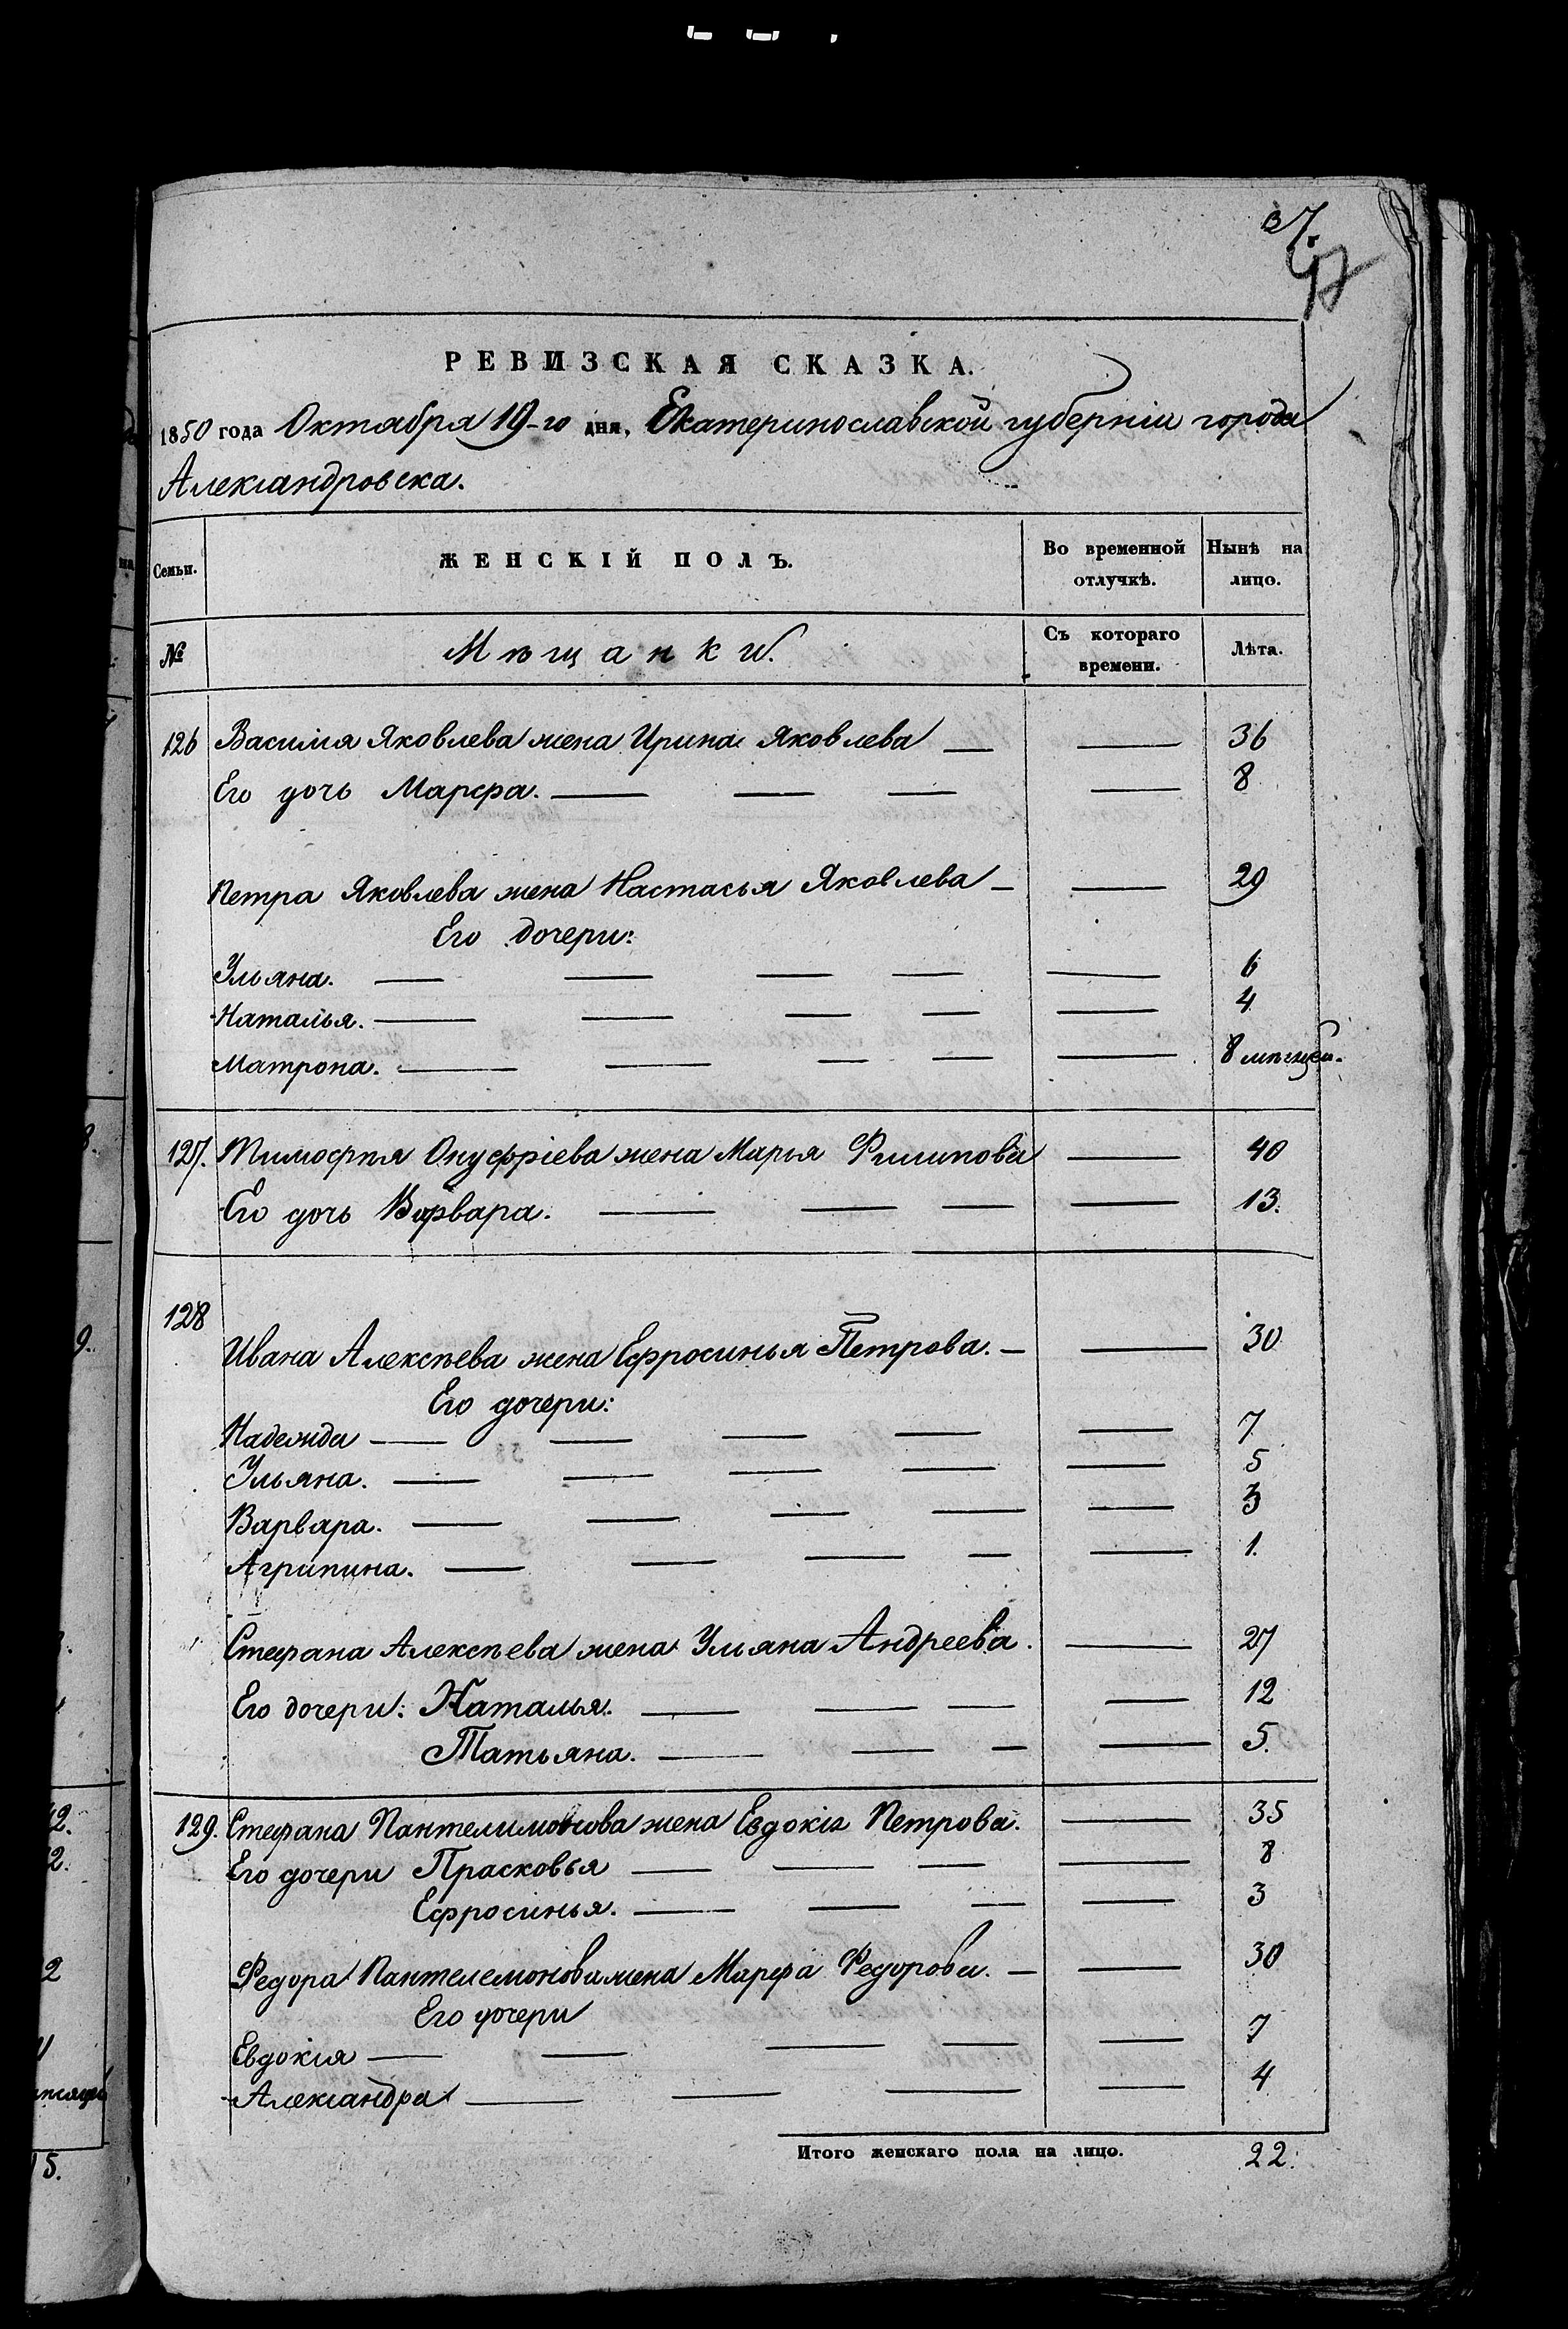 37.
47
РЕВИЗСКАЯ СКАЗКА.
1850 года Октября 19-го дня, Екатеринославской губерніи города
Александровска.
Семьи. ЖЕНСКІЙ ПОЛЪ. Во временной отлучкѣ. Нынѣ на лицо.
№ Мѣщанки. Съ котораго времени. Лѣта.
126 Василія Яковлева жена Ирина Яковлева — — 36
Его дочь Марфа. — — — — 8
Петра Яковлева жена Настасья Яковлева — — 29
Его дочери:
Ульяна. — — — — — 6
Наталья. — — — — — 4
Матрона. — — — — — 8 мѣсяцей.
127. Тимофѣя Онуфріева жена Марья Филипова — 40
Его дочь Варвара. — — — — 13.
128
Ивана Алексѣева жена Ефросинья Петрова. — — 30
Его дочери:
Надежда — — — — — 7
Ульяна. — — — — — 5
Варвара. — — — — — 3
Агрипина. — — — — — 1.
Стефана Алексѣева жена Ульяна Андреева. — 27
Его дочери: Наталья. — — — — 12
Татьяна. — — — — 5.
129. Стефана Пантелимонова жена Евдокія Петрова. — 35
Его дочери Прасковья — — — — 8
Ефросинья. — — — — 3
Федора Пантелемонова жена Марфа Федорова. — — 30
Его дочери
Евдокія — — — — — 7
Александра — — — — 4
Итого женскаго пола на лицо. 22.